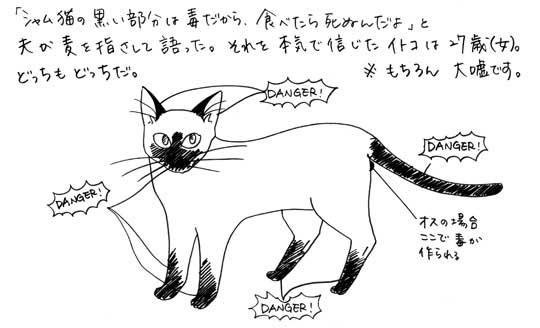 「シャム猫の黒い部分は毒だから、食べたら死ぬんだよ」と
夫が麦を指さして語った。それを本気で信じたイトコは27歳(女)。
どっちもどっちだ。
※もちろん大嘘です。
DANGER!
DANGER!
DANGER!
オスの場合
ここで毒が
作られる
DANGER!